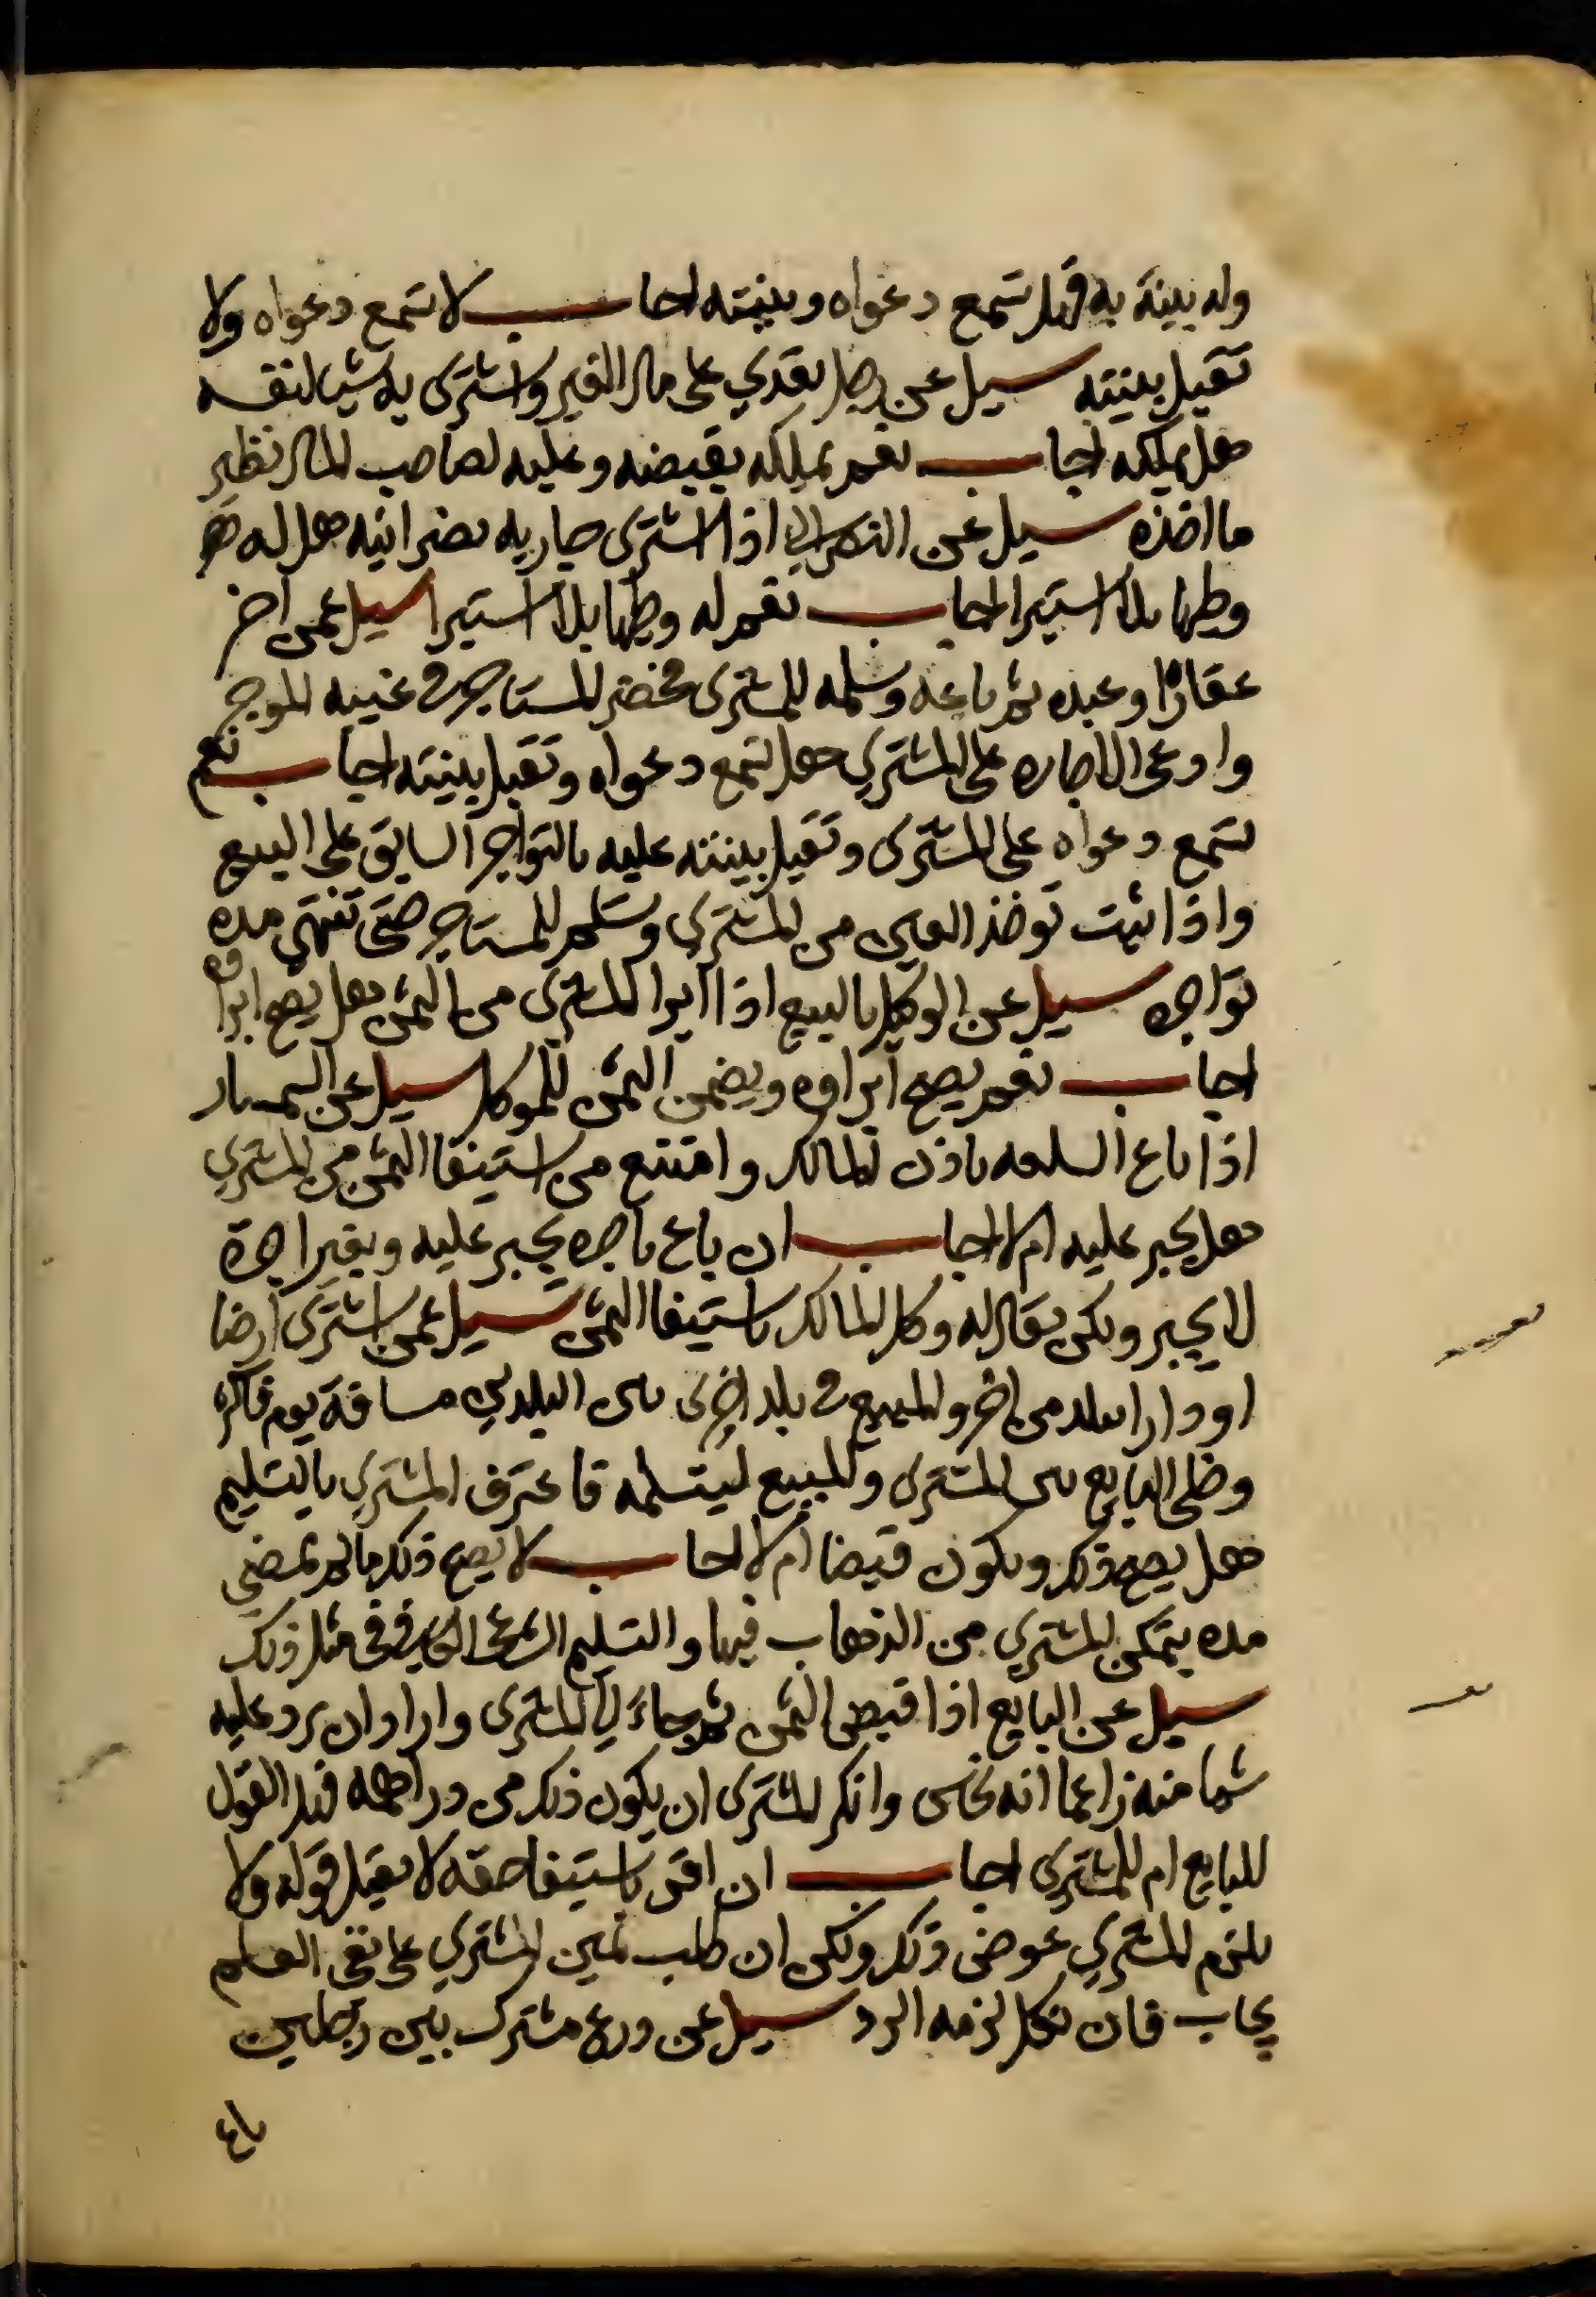 وله بينة به فهل تسمع دعواه وبينته اجاب لا تسمع دعواه ولا
تقبل بينته سيل عن رجل تعدي على مال الغير واشترى به شيا لنفسه
هل يملكه اجاب نعم يملكه بقبضه وعليه لصاحب المال نظير
ما اخذه سيل عن النصراني اذا اشترى جاريه نصرانيه هل له
وطيها بلا استبرا اجاب نعم له وطيها بلا استبرا سيل عمن اجر
عقارا او عبده ثم باعه وسلمه للمشتري فحضر المستاجر في غيبه الموجر
وادعى الاجاره على المشتري هل تسمع دعواه وتقبل بينته اجاب نعم
تسمع دعواه على المشترى وتقبل بينته عليه بالتواجر السابق على البيع
واذا ثبت توخذ العين من المشتري وتسلم للمستاجر حتى تنتهي مده
تواجره سيل عن الوكيل بالبيع اذا ابرا المشترى من الثمن هل يصح ابراوه
اجاب نعم يصح ابراوه ويضمن الثمن للموكل سيل عن السمسار
اذا باع السلعه باذن المالك وامتنع من استيفا الثمن من المشتري
هل يجبر عليه ام لا اجاب ان باع باجره يجبر عليه وبغير اجرة
لا يجبر ولكن يقال له وكل المالك باستيفا الثمن سيل عمن اشترى ارضا
او دارا ببلد من اخر والمبيع في بلد اخرى بين البلدين مسافة يوم فاكثر
وخلى البايع بين المشترى والمبيع ليتسلمه فاعترف المشتري بالتسليم
هل يصح ذلك ويكون قبضا ام لا اجاب لا يصح ذلك ما لم تمضي
مده يتمكن المشتري من الذهاب فيها والتسليم الشرعي في مثل ذلك
سيل عن البايع اذا قبض الثمن ثم جاء الي المشترى واراد ان يرد عليه
شيا منه زاعما انه نحاس وانكر المشترى ان يكون ذلك من دراهمه فهل القول
للبايع ام للمشتري اجاب ان اقر باستيفا حقه لا يقبل قوله ولا
يلزم المشتري عوض ذلك ولكن ان طلب يمين المشتري على نفي العلم
يجاب فان نكل لزمه الرد سيل عن زرع مشترك بين رجلين
باع